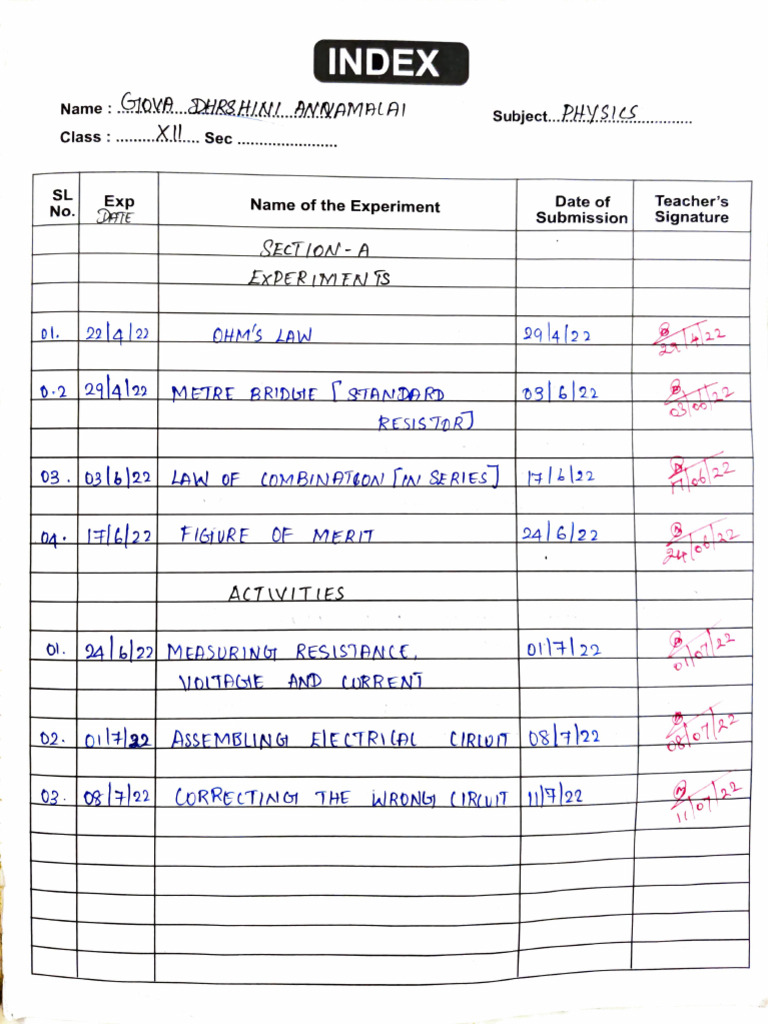 INDEX
Name : GIOVA DHRSHINI ANNAMALAI Subject PHYSICS
Class : XII Sec
SL No. Exp DATE Name of the Experiment Date of Submission Teacher's Signature
SECTION - A
EXPERIMENTS
01. 22/4/22 OHM'S LAW 29/4/22 29/4/22
0.2 29/4/22 METRE BRIDGE [STANDARD 03/6/22 03/06/22
RESISTOR]
03. 03/6/22 LAW OF COMBINATION [IN SERIES] 17/6/22 17/06/22
04. 17/6/22 FIGURE OF MERIT 24/6/22 24/06/22
ACTIVITIES
01. 24/6/22 MEASURING RESISTANCE, 01/7/22 01/07/22
VOLTAGE AND CURRENT
02. 01/7/22 ASSEMBLING ELECTRICAL CIRCUIT 08/7/22 08/07/22
03. 08/7/22 CORRECTING THE WRONG CIRCUIT 11/7/22 11/07/22